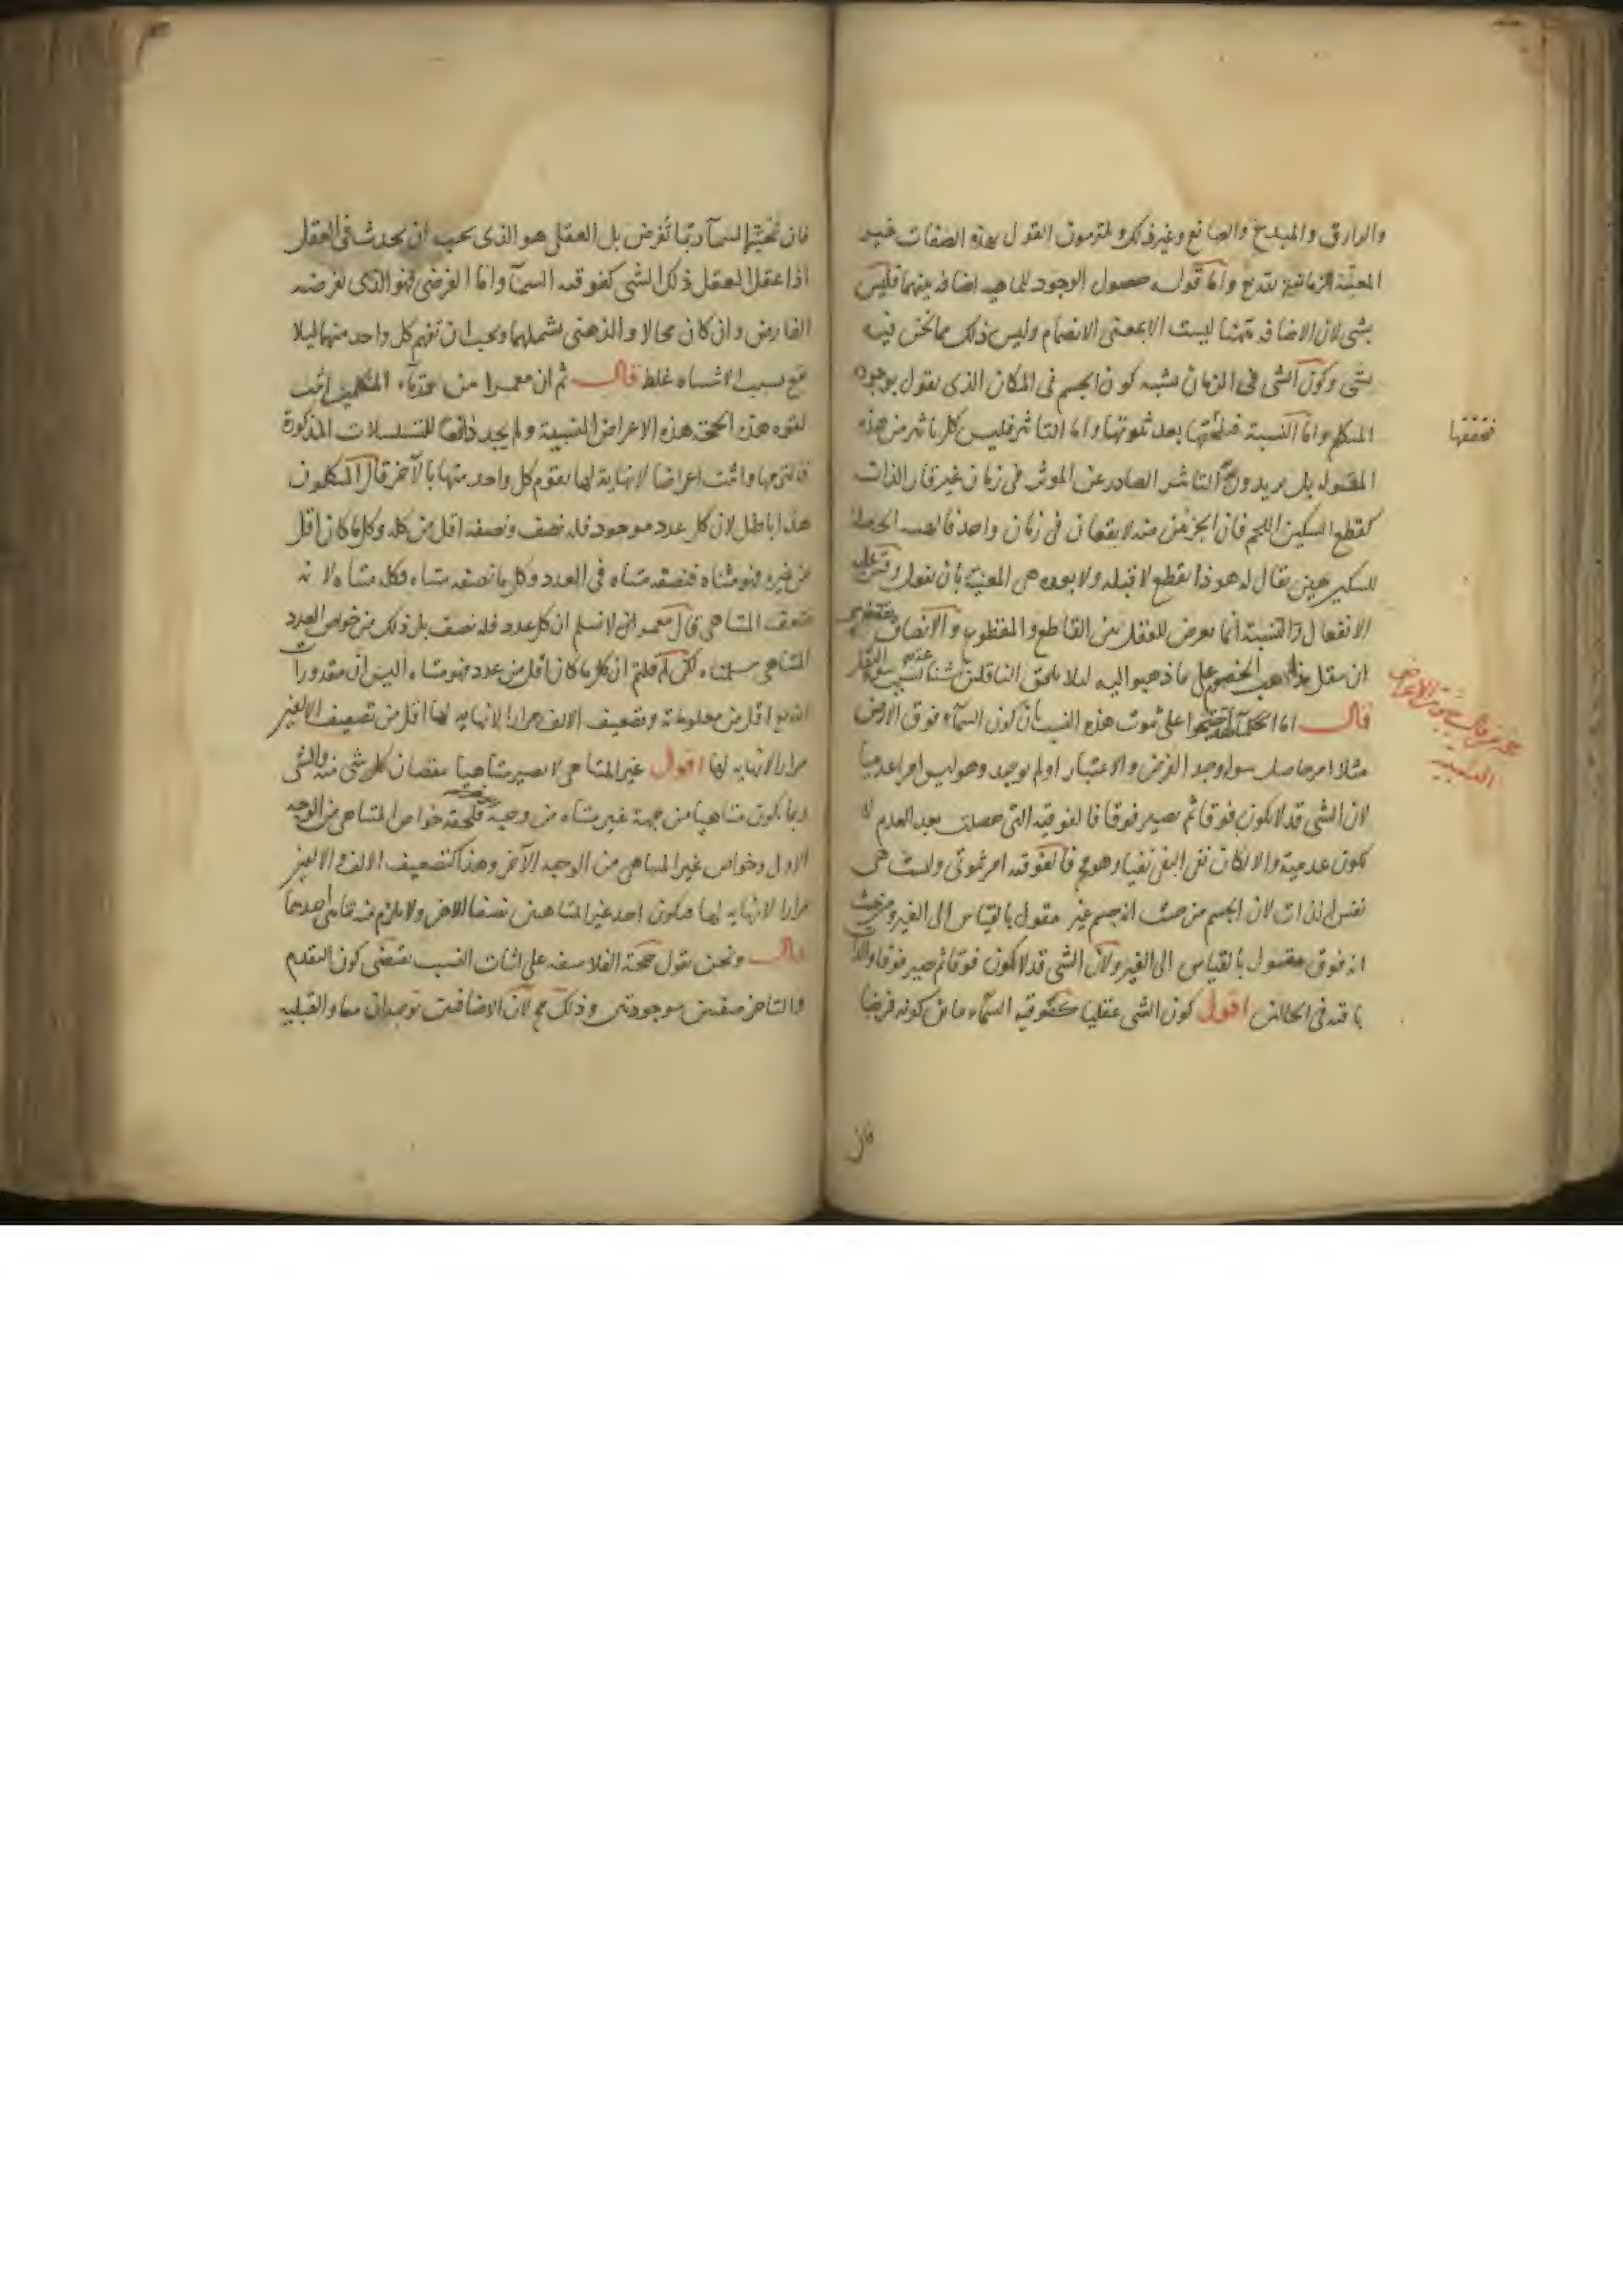 والرازق والمبدع والصانع وغير ذلك ولمتزمون القول بهذه الصفات غير
المعيّة الزمانية بقديم وامّا قوله حصول الوجود للماهيه اضافه بينهما فليس
بشى لان الاضافه ههنا ليست الا بمعنى الانضمام وليس ذلك مما نحن فيه
بشى وكون الشى فى الزمان يشبه كون الجسم فى المكان الذى يقول بوجوده
المتكلم وامّا النسبة فتحققها بعد ثبوتها واما التاثير فليس كل تاثير من هذه
المقوله بل يريدون التاثير الصادر عن الموثر فى زمان غير قار الذات
كقطع السكين اللحم فان الجزئين منه لا يقعان فى زمان واحد فالهيئة الحاصلة
للسكين حين يقال له هوذا يقطع لا قبله ولا بعده هى المعنيّة بان يفعل وقس عليه
الانفعال والنسبة انما يعرض للعقل بين القاطع والمقطوع والانصاف يقتضى
ان ينقل مذاهب الخصوم على ما ذهبوا اليه ليلا يلحق الناقلين شناعة بسبب سوء النقل
قال اما الحكماء فقد احتجوا على ثبوت هذه النسب بان كون السماء فوق الارض
مثلا امر حاصل سواء وجد الفرض والاعتبار اولم يوجد وهو ليس امرا عدميا
لان الشى قد لا يكون فوقا ثم يصير فوقا فالفوقيه التى حصلت بعد العدم لا
تكون عدمية والا لكان نفى النفى نفيا وهو مح فالفوقيه امر ثبوتى وليست هى
نفس الذات لان الجسم من حيث انه جسم غير مقول بالقياس الى الغير ومن حيث
انه فوق مقول بالقياس الى الغير ولان الشى قد لا يكون فوقا ثم يصير فوقا والذات
باقيه فى الحالين اقول كون الشى عقليا كفوقيه السماء مباين كونه فرضيا
فتحققها
الاعراض
النسبيه
فان
فان تحتيّة السماء ربّما تفرض بل العقلى هو الذى يجب ان يحدث فى العقل
اذا عقل العقل ذلك الشى كفوقيه السماء وامّا الفرضى فهو الذى يفرضه
الفارض وان كان محالا والذهنى يشملهما ويجب ان تفهم كل واحد منهما ليلا
يقع بسبب الاشتباه غلط قال ثم ان معمرا من قدماء المتكلمين اثبت
لقوه هذه الحجة هذه الاعراض النسبية ولم يجد دافعا للتسلسلات المذكورة
فالتزمها واثبت اعراضا لا نهاية لها يقوم كل واحد منها بالآخر قال المتكلمون
هذا باطل لان كل عدد موجود فله نصف ونصفه اقل من كله وكل ما كان اقل
من غيره فهو متناه فنصفه متناه فى العدد وكل ما نصفه متناه فكله متناه لانه
ضعف المتناهى قال معمر انى لا نسلم ان كل عدد فله نصف بل ذلك من خواص العدد
المتناهى سلمناه لكن لم قلتم ان كل ما كان اقل من عدد فهو متناه اليس ان مقدورات
الله اقل من معلوماته وتضعيف الالف مرارا لا نهايه لها اقل من تضعيف الالفين
مرارا لا نهايه لها اقول غير المتناهى لا يصير متناهيا بنقصان كل شى منه والشى
ربما يكون متناهيا من جهة غير متناه من وجهة فلحقه خواص المتناهى من الوجه
الاول وخواص غير المتناهى من الوجه الآخر وهذا كتضعيف الالف والالفين
مرارا لا نهايه لها فيكون احد غير المتناهيين نصفا للاخر ولا يلزم منه تناهى احدهما
قال ونحن نقول حجة الفلاسفه على اثبات النسب يقتضى كون التقدم
والتاخر صفتين موجودتين وذلك مح لان الاضافتين توجدان معا والقبليه